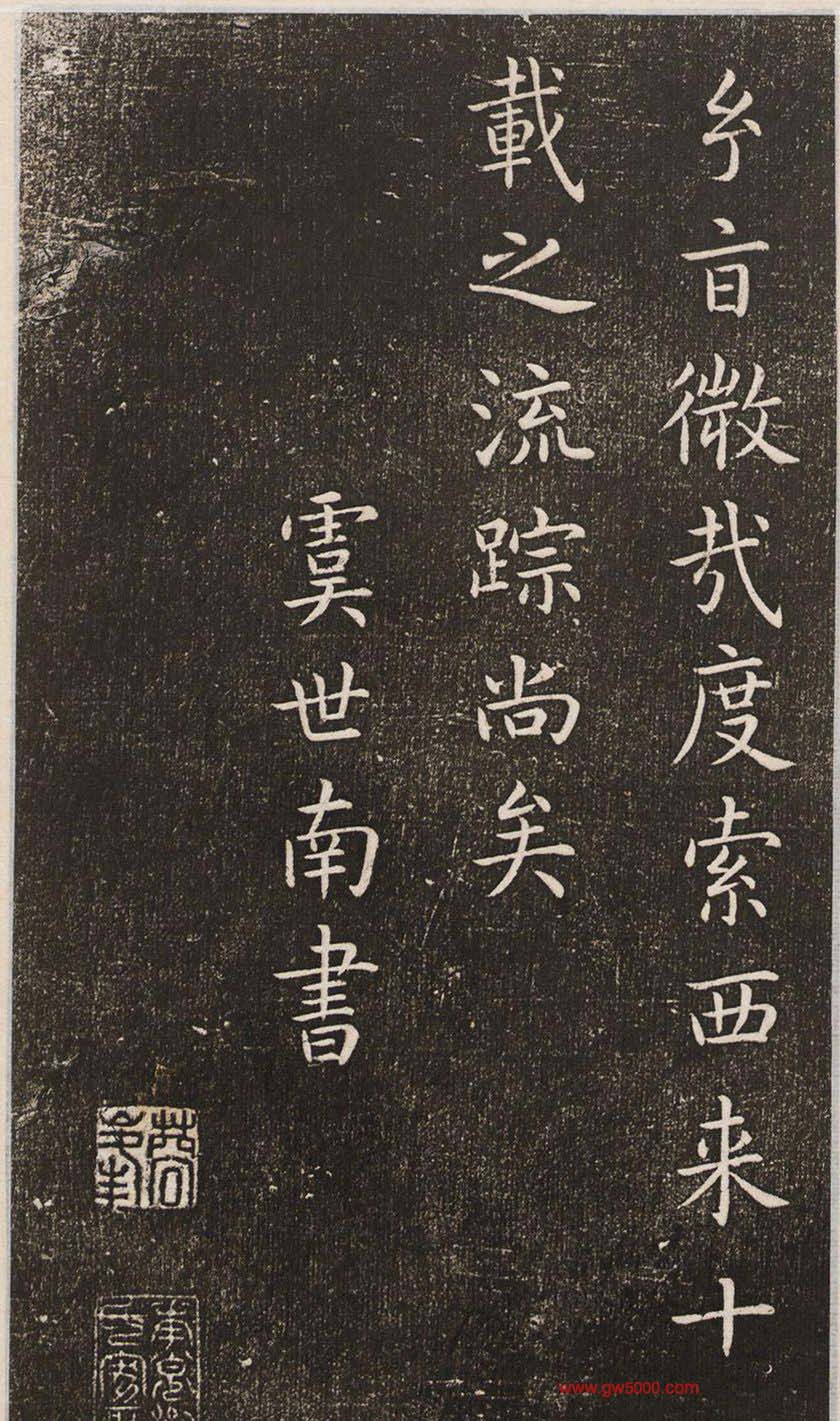 㫖微哉度索西来十
載之流踪尚矣
虞世南書
www.gw5000.com